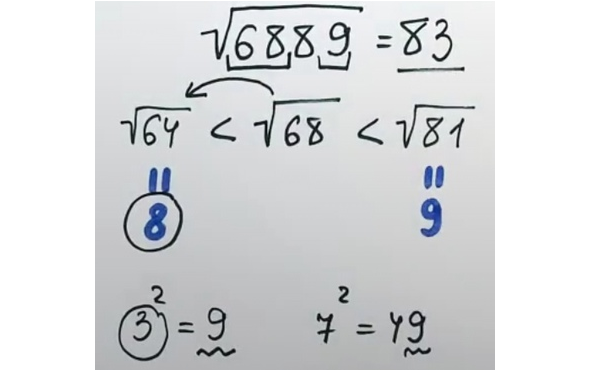 √6889 = 83
√64 < √68 < √81
" "
8 9
3² = 9 7² = 49